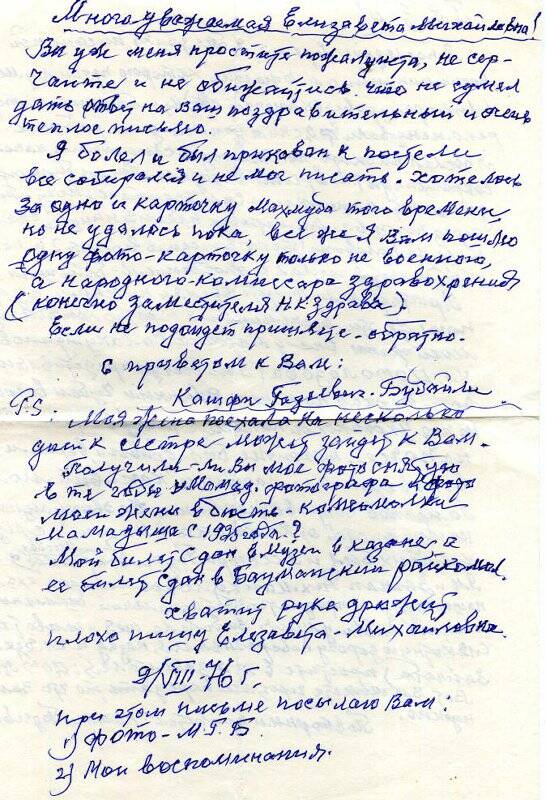 Многоуважаемая Елизавета Михайловна!
Вы уж меня простите пожалуйста, не сер-
чайте и не обижайтись что не сумел
дать ответ на Ваш поздравительный и очень
теплое письмо.
Я болел и был прикован к постели
все собирался и не мог писать. хотелось
за одно и карточку Махмуда того времени,
но не удалось пока, все же я Вам пошлю
одну фото-карточку только не военного,
а народного-комиссара здравохрения
(конечно заместителя Н.К.Здрава).
Если не подойдет пришлете-обратно.
С приветом к Вам:
Кашфи Гадеевич
P.S: Моя жена поехала на несколько
дней к сестре может зайдет к Вам.
Получили-ли Вы мое фото снятую
в те годы у Мамад. фотографа и фото
моей жены в бюсте-комсомолки
Мамадыша с 1925 года?
Мой билет сдан в музей в Казане а
ее билет сдан в Бауманский райком.
хватит рука дрожит
плохо пишу Елизавета-Михайловна.
9/VIII-76 г.
при этом письме посылаю Вам:
1) Фото-М.Г.Б.
2) Мои воспоминания.